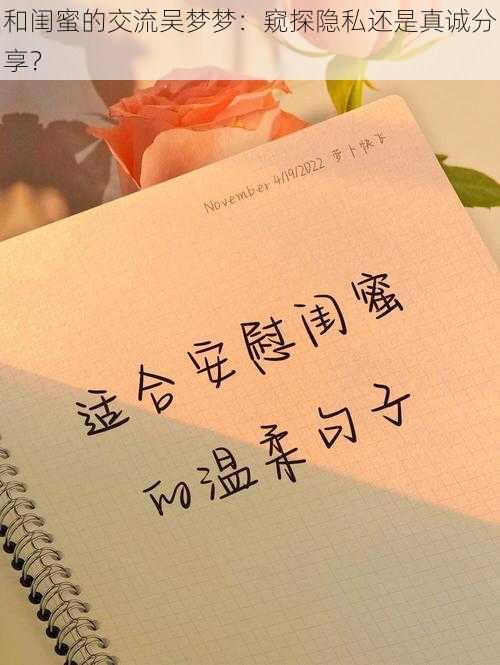 和闺蜜的交流吴梦梦：窥探隐私还是真诚分
享？
November 4/19/2022 萝卜快飞
适合安慰闺蜜
的温柔句子